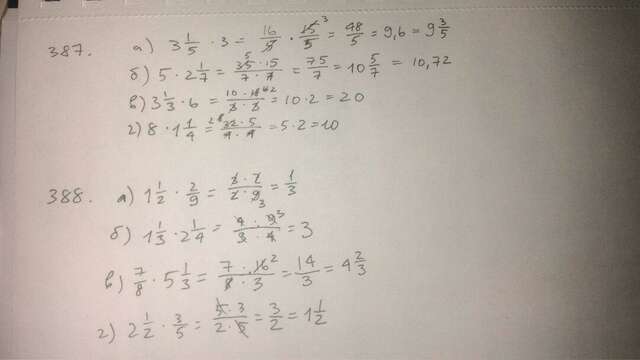 387. а) 3 1/5 · 3 = 16/5 · 15/5 3 = 48/5 = 9,6 = 9 3/5
б) 5 · 2 1/7 = 5 35 · 15 / 7 · 7 = 75/7 = 10 5/7 = 10,72
в) 3 1/3 · 6 = 10 · 18 2 / 3 · 3 = 10 · 2 = 20
г) 8 · 1 1/4 = 32 · 5 / 4 · 4 = 5 · 2 = 10
388. а) 1 1/2 · 2/9 = 3 · 2 / 2 · 9 3 = 1/3
б) 1 1/3 · 2 1/4 = 4 · 9 3 / 3 · 4 = 3
в) 7/8 · 5 1/3 = 7 · 16 2 / 8 · 3 = 14/3 = 4 2/3
г) 2 1/2 · 3/5 = 5 · 3 / 2 · 5 = 3/2 = 1 1/2